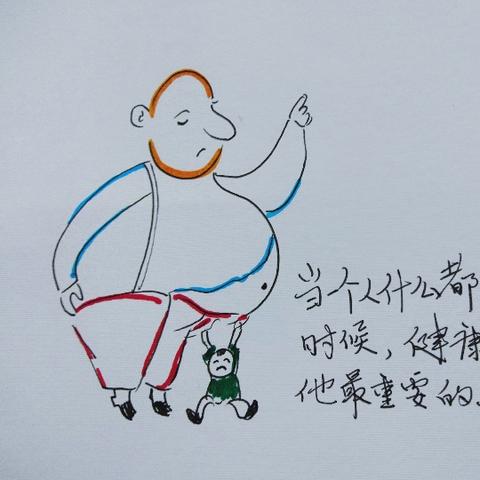 当个人什么都
时候，健康
他最重要的